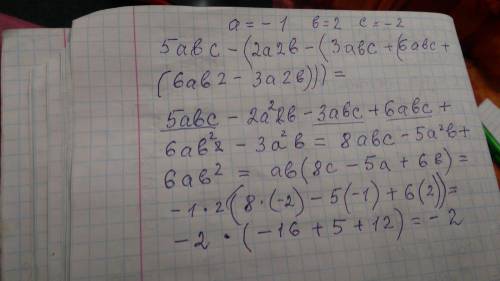 a = -1 в=2 c = -2
5авс - (2a2в - (3авс + (6авс +
(6ав2 - 3a2в))) =
5авс - 2a²2в - 3авс + 6авс +
6ав²2 - 3a²в = 8авс - 5a²в +
6ав² = ав(8с - 5а + 6в) =
-1·2(8·(-2) - 5(-1) + 6(2)) =
-2 · (-16 + 5 + 12) = -2